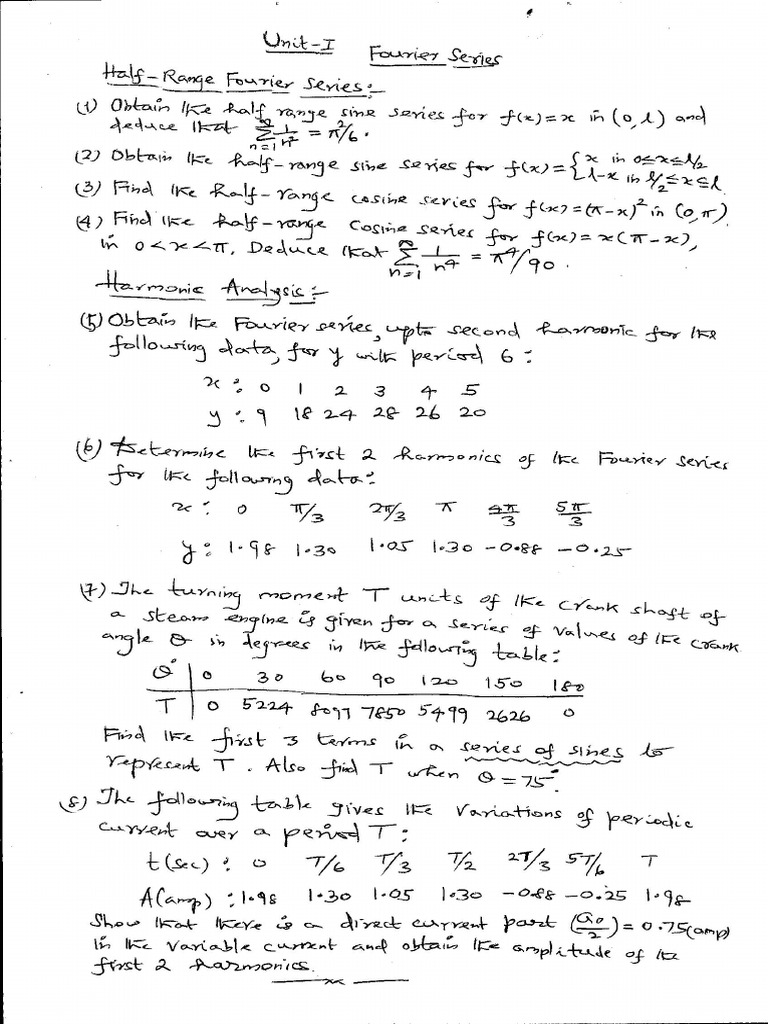 Unit-I Fourier Series
Half-Range Fourier Series:-
(1) Obtain the half range sine series for f(x)=x in (0,l) and
deduce that ∞Σn=1 1/n² = π²/6.
(2) Obtain the half-range sine series for f(x)={x in 0≤x≤l/2
l-x in l/2≤x≤l.
(3) Find the half-range cosine series for f(x)=(π-x)² in (0,π).
(4) Find the half-range cosine series for f(x)=x(π-x),
in 0<x<π. Deduce that ∞Σn=1 1/n⁴ = π⁴/90.
Harmonic Analysis:-
(5) Obtain the Fourier series, upto second harmonic for the
following data, for y with period 6:
x: 0 1 2 3 4 5
y: 9 18 24 28 26 20
(6) Determine the first 2 harmonics of the Fourier series
for the following data:
x: 0 π/3 2π/3 π 4π/3 5π/3
y: 1.98 1.30 1.05 1.30 -0.88 -0.25
(7) The turning moment T units of the crank shaft of
a steam engine is given for a series of values of the crank
angle θ in degrees in the following table:
θ° 0 30 60 90 120 150 180
T 0 5224 8097 7850 5499 2626 0
Find the first 3 terms in a series of sines to
represent T. Also find T when θ=75°.
(8) The following table gives the variations of periodic
current over a period T:
t(sec): 0 T/6 T/3 T/2 2T/3 5T/6 T
A(amp): 1.98 1.30 1.05 1.30 -0.88 -0.25 1.98
Show that there is a direct current part (a₀/2)=0.75(amp)
in the variable current and obtain the amplitude of the
first 2 harmonics.